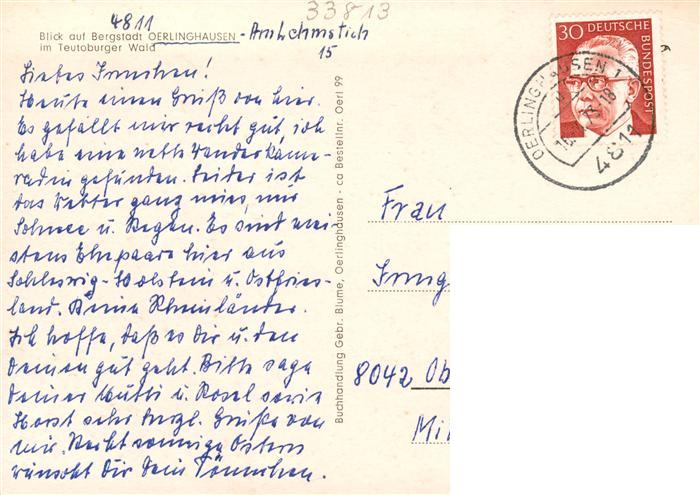 4811
33813
Blick auf Bergstadt OERLINGHAUSEN - Am Lehmstich
im Teutoburger Wald
15
Liebes Irmchen!
Heute einen Gruß von hier.
Es gefällt mir recht gut, ich
habe eine nette Wanderkame-
radin gefunden. Leider ist
das Wetter ganz mies, nur
Schnee u. Regen. Es sind mei-
stens Ehepaare hier aus
Schleswig-Holstein u. Ostfries-
land. Keine Rheinländer.
Ich hoffe, daß es Dir u. den
Deinen gut geht. Bitte sage
Deiner Mutti u. Rosel sowie
Horst sehr herzl. Grüße von
mir. Recht sonnige Ostern
wünscht Dir Dein Tönnchen.
Buchhandlung Gebr. Blume, Oerlinghausen - ca Bestellnr. Oerl 99
30 DEUTSCHE
BUNDESPOST
OERLINGHAUSEN 1
4811
Frau
Irmg
8042 Ob
Mit